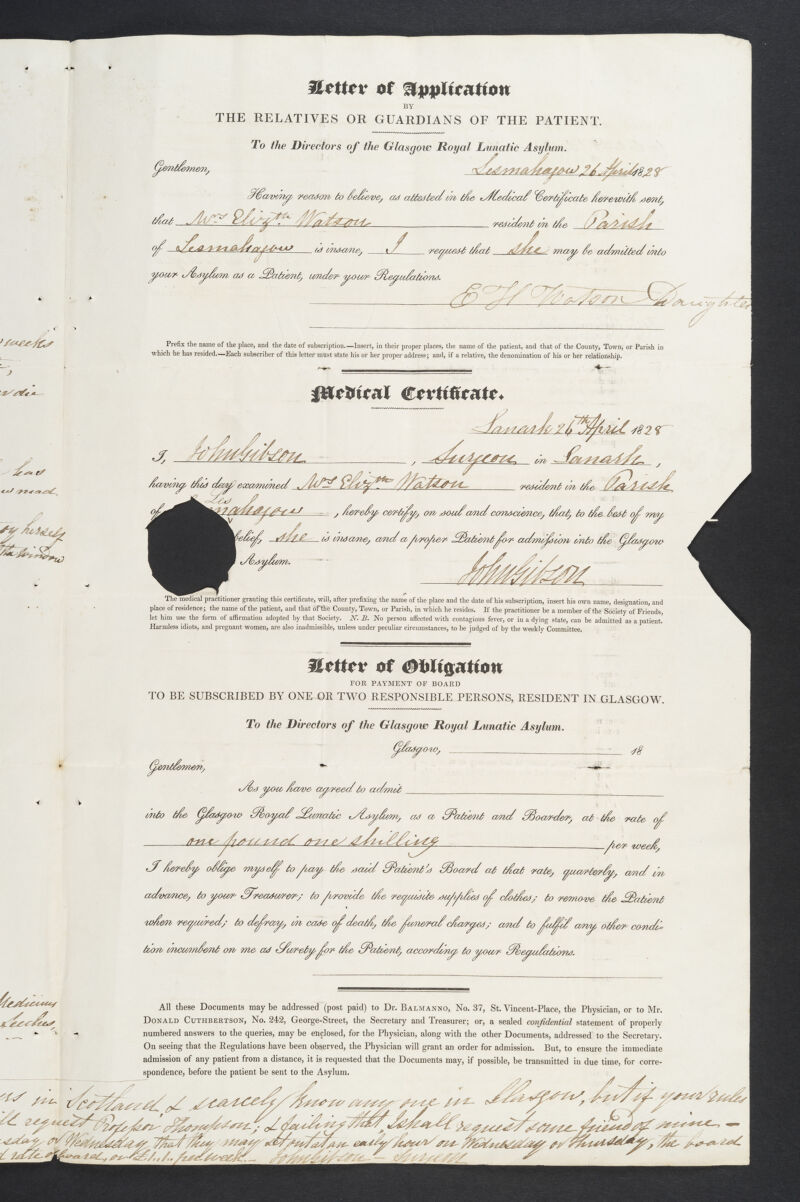 Letter of Application
BY
THE RELATIVES OR GUARDIANS OF THE PATIENT.
To the Directors of the Glasgow Royal Lunatic Asylum.
Gentlemen, Lesmahagow 26 April 1828
Having reason to believe, as attested in the Medical Certificate herewith sent,
that Mrs Elizth. Watson resident in the Parish
of Lesmahagow is insane, I request that she may be admitted into
your Asylum as a Patient, under your Regulations.
E H Watson Daughter
Prefix the name of the place, and the date of subscription.—Insert, in their proper places, the name of the patient, and that of the County, Town, or Parish in
which he has resided.—Each subscriber of this letter must state his or her proper address; and, if a relative, the denomination of his or her relationship.
Medical Certificate.
Lanark 26th April 1828
I, John Gibson, Surgeon in Lanark,
having this day examined Mrs Elizth Watson resident in the Parish
of Lesmahagow, hereby certify, on soul and conscience, that, to the best of my
belief, she is insane, and a proper Patient for admission into the Glasgow
Asylum.
John Gibson
The medical practitioner granting this certificate, will, after prefixing the name of the place and the date of his subscription, insert his own name, designation, and
place of residence; the name of the patient, and that of the County, Town, or Parish, in which he resides. If the practitioner be a member of the Society of Friends,
let him use the form of affirmation adopted by that Society. N. B. No person affected with contagious fever, or in a dying state, can be admitted as a patient.
Harmless idiots, and pregnant women, are also inadmissible, unless under peculiar circumstances, to be judged of by the weekly Committee.
Letter of Obligation
FOR PAYMENT OF BOARD
TO BE SUBSCRIBED BY ONE OR TWO RESPONSIBLE PERSONS, RESIDENT IN GLASGOW.
To the Directors of the Glasgow Royal Lunatic Asylum.
Glasgow, 18
Gentlemen,
As you have agreed to admit
into the Glasgow Royal Lunatic Asylum, as a Patient and Boarder, at the rate of
one pound one shilling per week,
I hereby oblige myself to pay the said Patient's Board at that rate, quarterly, and in
advance, to your Treasurer; to provide the requisite supplies of clothes; to remove the Patient
when required; to defray, in case of death, the funeral charges; and to fulfil any other condi-
tion incumbent on me as Surety for the Patient, according to your Regulations.
All these Documents may be addressed (post paid) to Dr. BALMANNO, No. 37, St. Vincent-Place, the Physician, or to Mr.
DONALD CUTHBERTSON, No. 242, George-Street, the Secretary and Treasurer; or, a sealed confidential statement of properly
numbered answers to the queries, may be enclosed, for the Physician, along with the other Documents, addressed to the Secretary.
On seeing that the Regulations have been observed, the Physician will grant an order for admission. But, to ensure the immediate
admission of any patient from a distance, it is requested that the Documents may, if possible, be transmitted in due time, for corre-
spondence, before the patient be sent to the Asylum.
weeks
die
has
mad
by herself
the window
Medicines
Leeches
in Scotland, & scarcely know any one in Glasgow, but if your rules
request Professor Thompson; & failing that, I shall request some friend of mine —
or Wednesday, that they may set out at an early hour on Wednesday or Thursday, the board
rate of board, or £1.1. per week — John Gibson — Surgeon